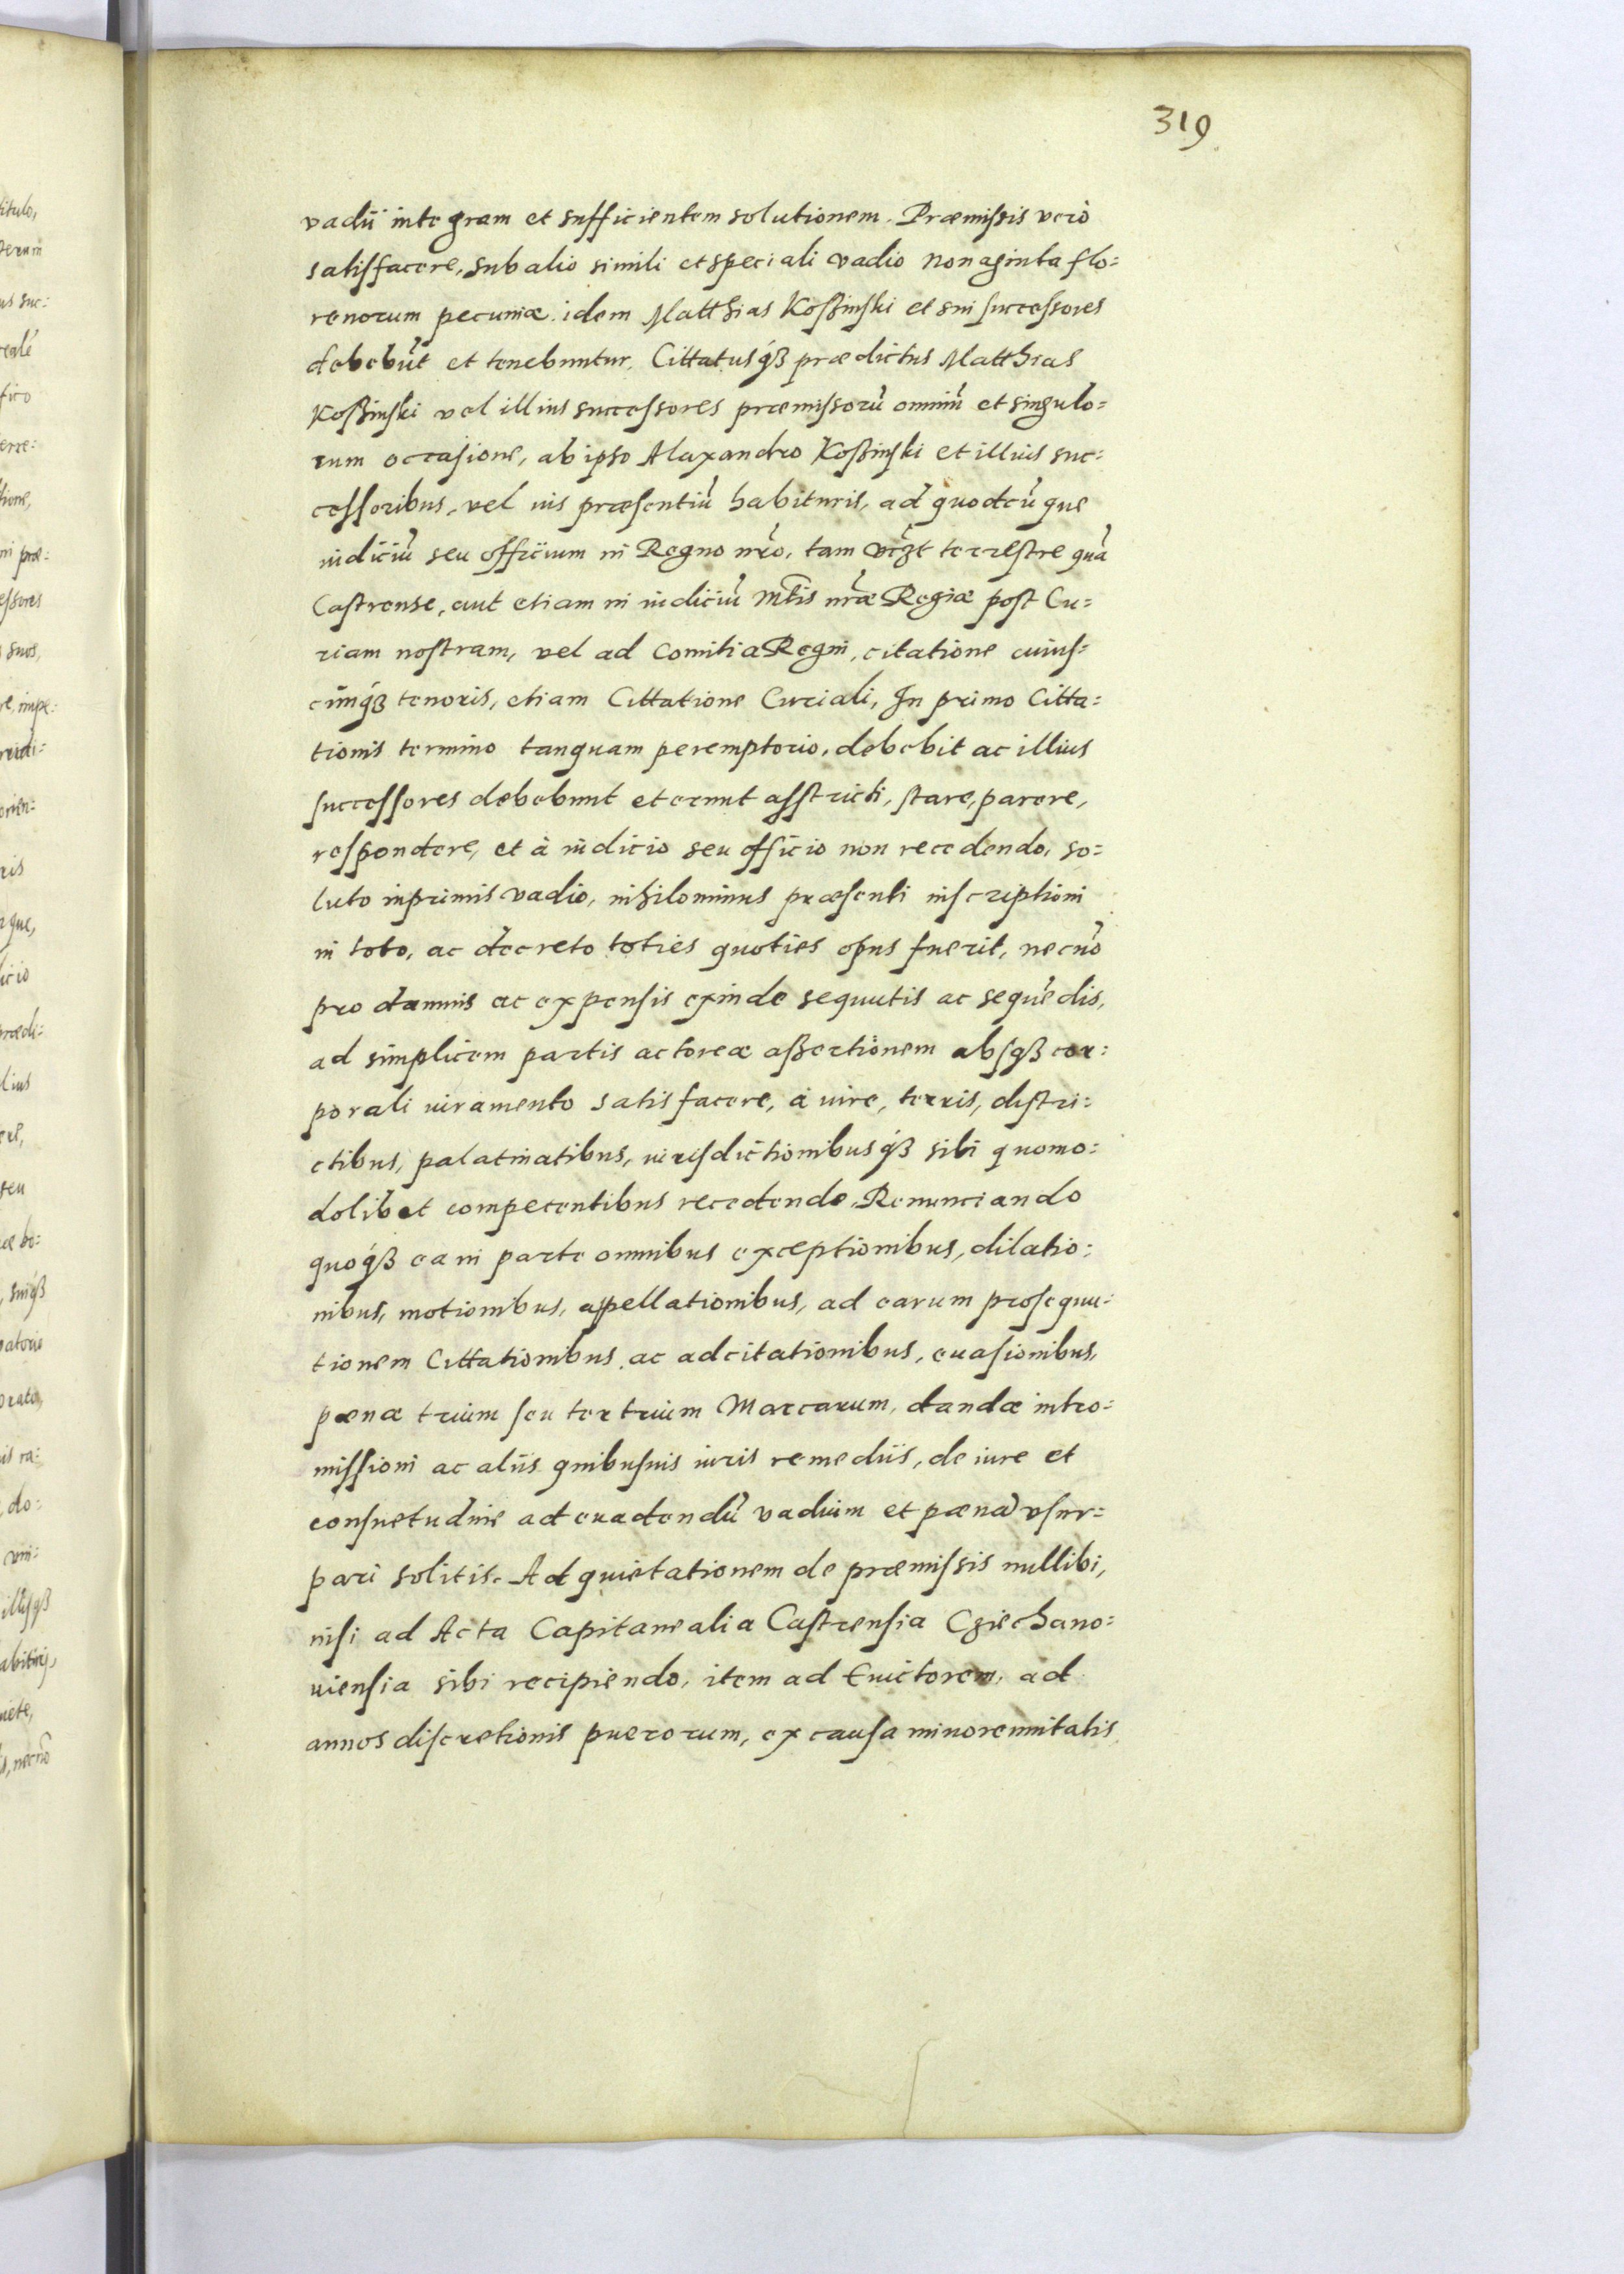 319
vadii integram et sufficientem solutionem. Præmissis verò
satisfacere, sub alio simili et speciali vadio nonaginta flo:
renorum pecuniæ. idem Matthias Koßinski et sui successores
debebūt et tenebuntur. Cittatusq́ꝫ prædictus Matthias
Koßinski vel illius successores præmissorū omniū et singulo:
rum occasione, ab ipso Alaxandro Koßinski et illius suc:
cessoribus, vel ius præsentiū habituris, ad quodcūque
iudiciū seu officium in Regno nr̃o, tam vꝫt terrestre quā
Castrense, aut etiam in iudiciū Mtis nr̃æ Regiæ post Cu:
riam nostram, vel ad Comitia Regni, citatione cuius:
cunq́ꝫ tenoris, etiam Cittatione Curiali, In primo Citta:
tionis termino tanquam peremptorio, debebit ac illius
successores debebunt et erunt asstricti, stare, parere,
respondere, et à iudicio seu officio non recedendo, so:
luto inprimis vadio, nihilominus præsenti inscriptioni
in toto, ac decreto toties quoties opus fuerit, necnõ
pro damnis ac expensis exinde sequutis ac sequẽdis,
ad simplicem partis actoreæ aßertionem absq́ꝫ cor:
porali iuramento satisfacere, à iure, terris, distri:
ctibus, palatinatibus, iurisdictionibusq́ꝫ sibi quomo:
dolibet competentibus recedendo. Renunciando
quoq́ꝫ ea in parte omnibus exceptionibus, dilatio:
nibus, motionibus, appellationibus, ad earum prosequu:
tionem Cittationibus ac adcitationibus, euasionibus,
pænæ trium seu ter trium Marcarum, dandæ intro:
missioni ac aliis quibusuis iuris remediis, de iure et
consuetudine ad euadendū vadium et pænā vsur:
pari solitis. Ad quietationem de præmissis nullibi,
nisi ad Acta Capitanealia Castrensia Cziechano:
uiensia sibi recipiendo, item ad Euictorem, ad
annos discretionis puerorum, ex causa minorennitatis